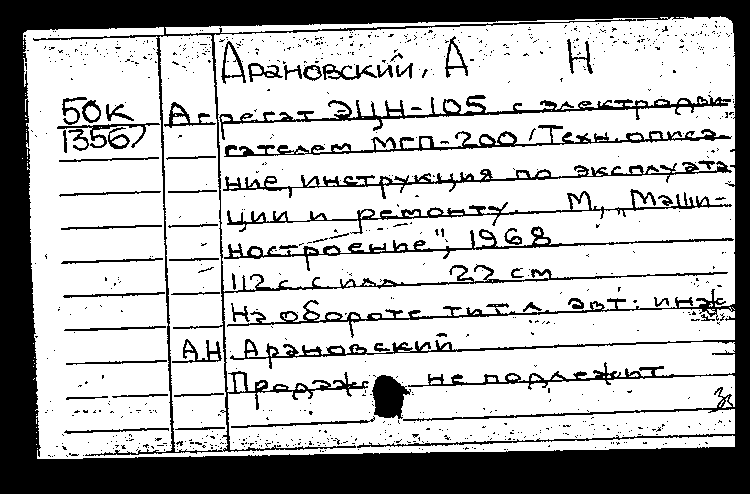 Арановский, А Н
50к
1356)
Агрегат ЭЦН-105 с электродви-
гателем МГП-200 (Техн. описа-
ние, инструкция по эксплуата-
ции и ремонту. М., „Маши-
ностроение", 1968
112 с. с илл. 22 см
На обороте тит. л. авт: инж
А.Н. Арановский
Продаже не подлежит.